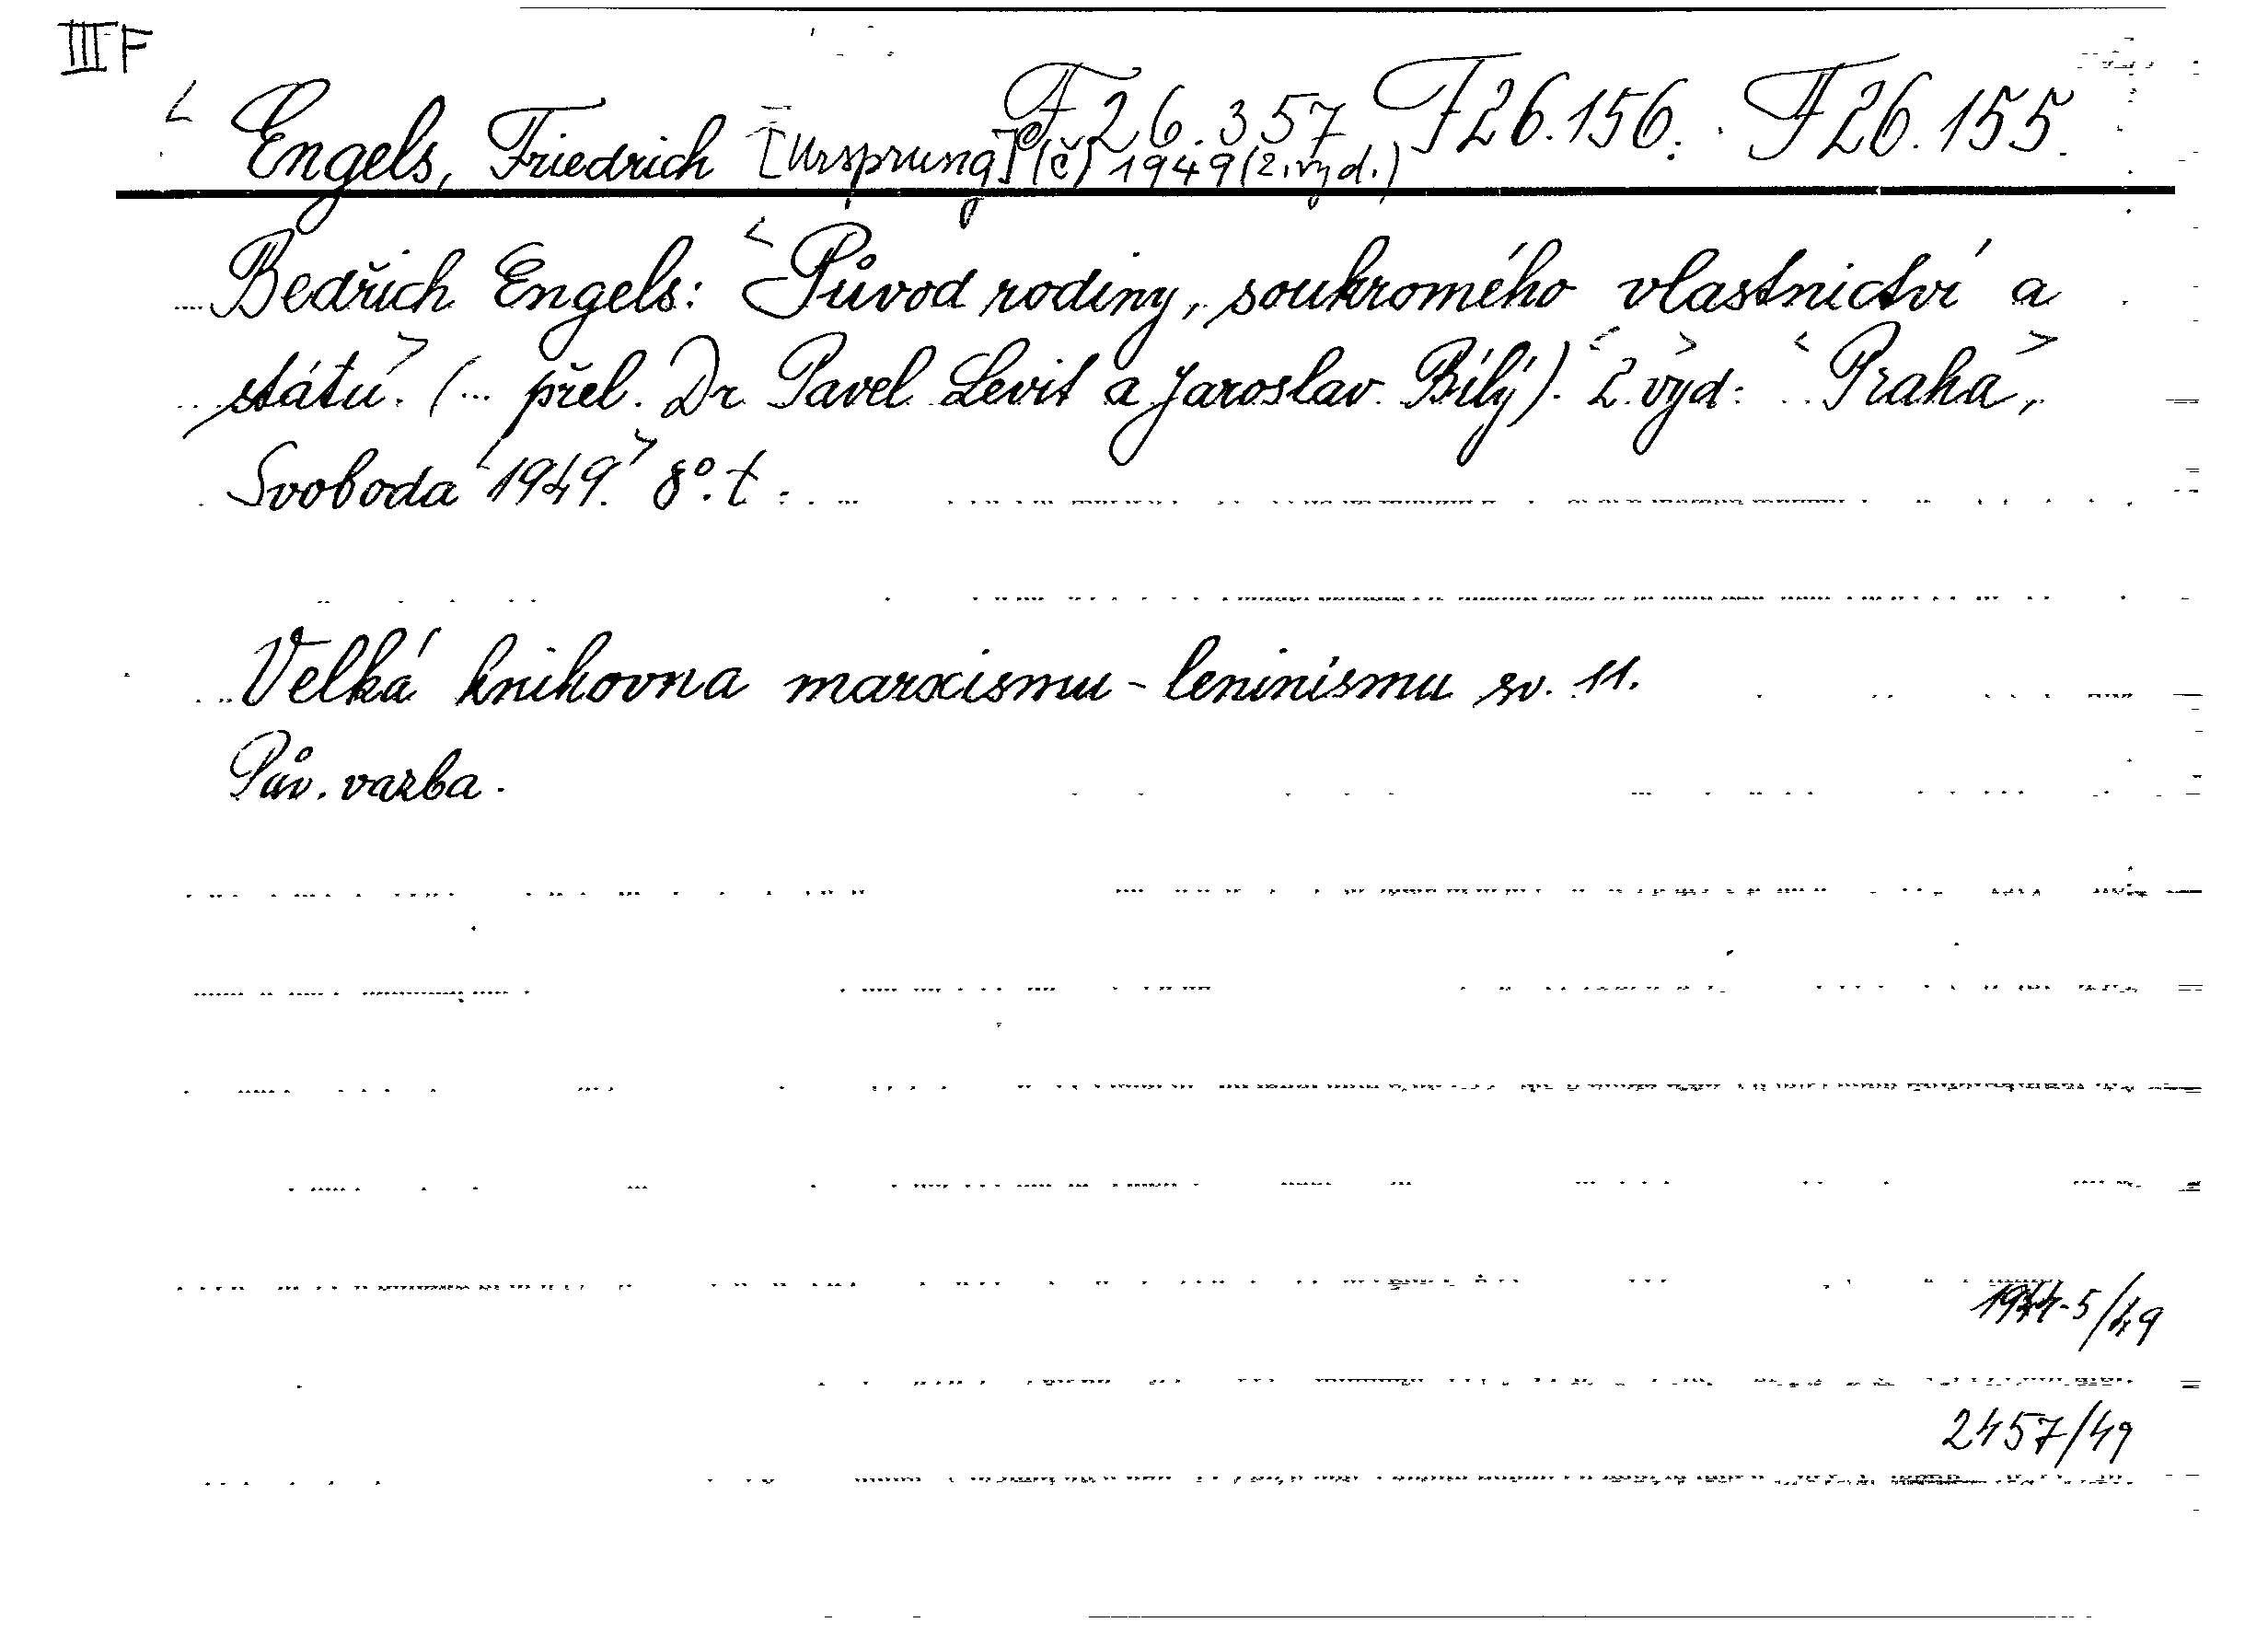 III F
F 26.357 F 26.156. F 26.155.
< Engels, Friedrich [Ursprung] (č) 1949 (2. vyd.)
Bedřich Engels: <Původ rodiny, soukromého vlastnictví a
státu.> (... přel. Dr Pavel Levit a Jaroslav Bílý). <2. vyd.> <Praha>,
Svoboda <1949.> 8°. t.
Velká knihovna marxismu-leninismu sv. 11.
Pův. vazba.
1944-5/49
2457/49